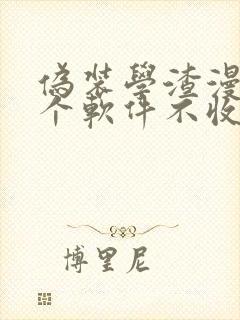 偽裝學渣漫
个軟件不收
博里尼